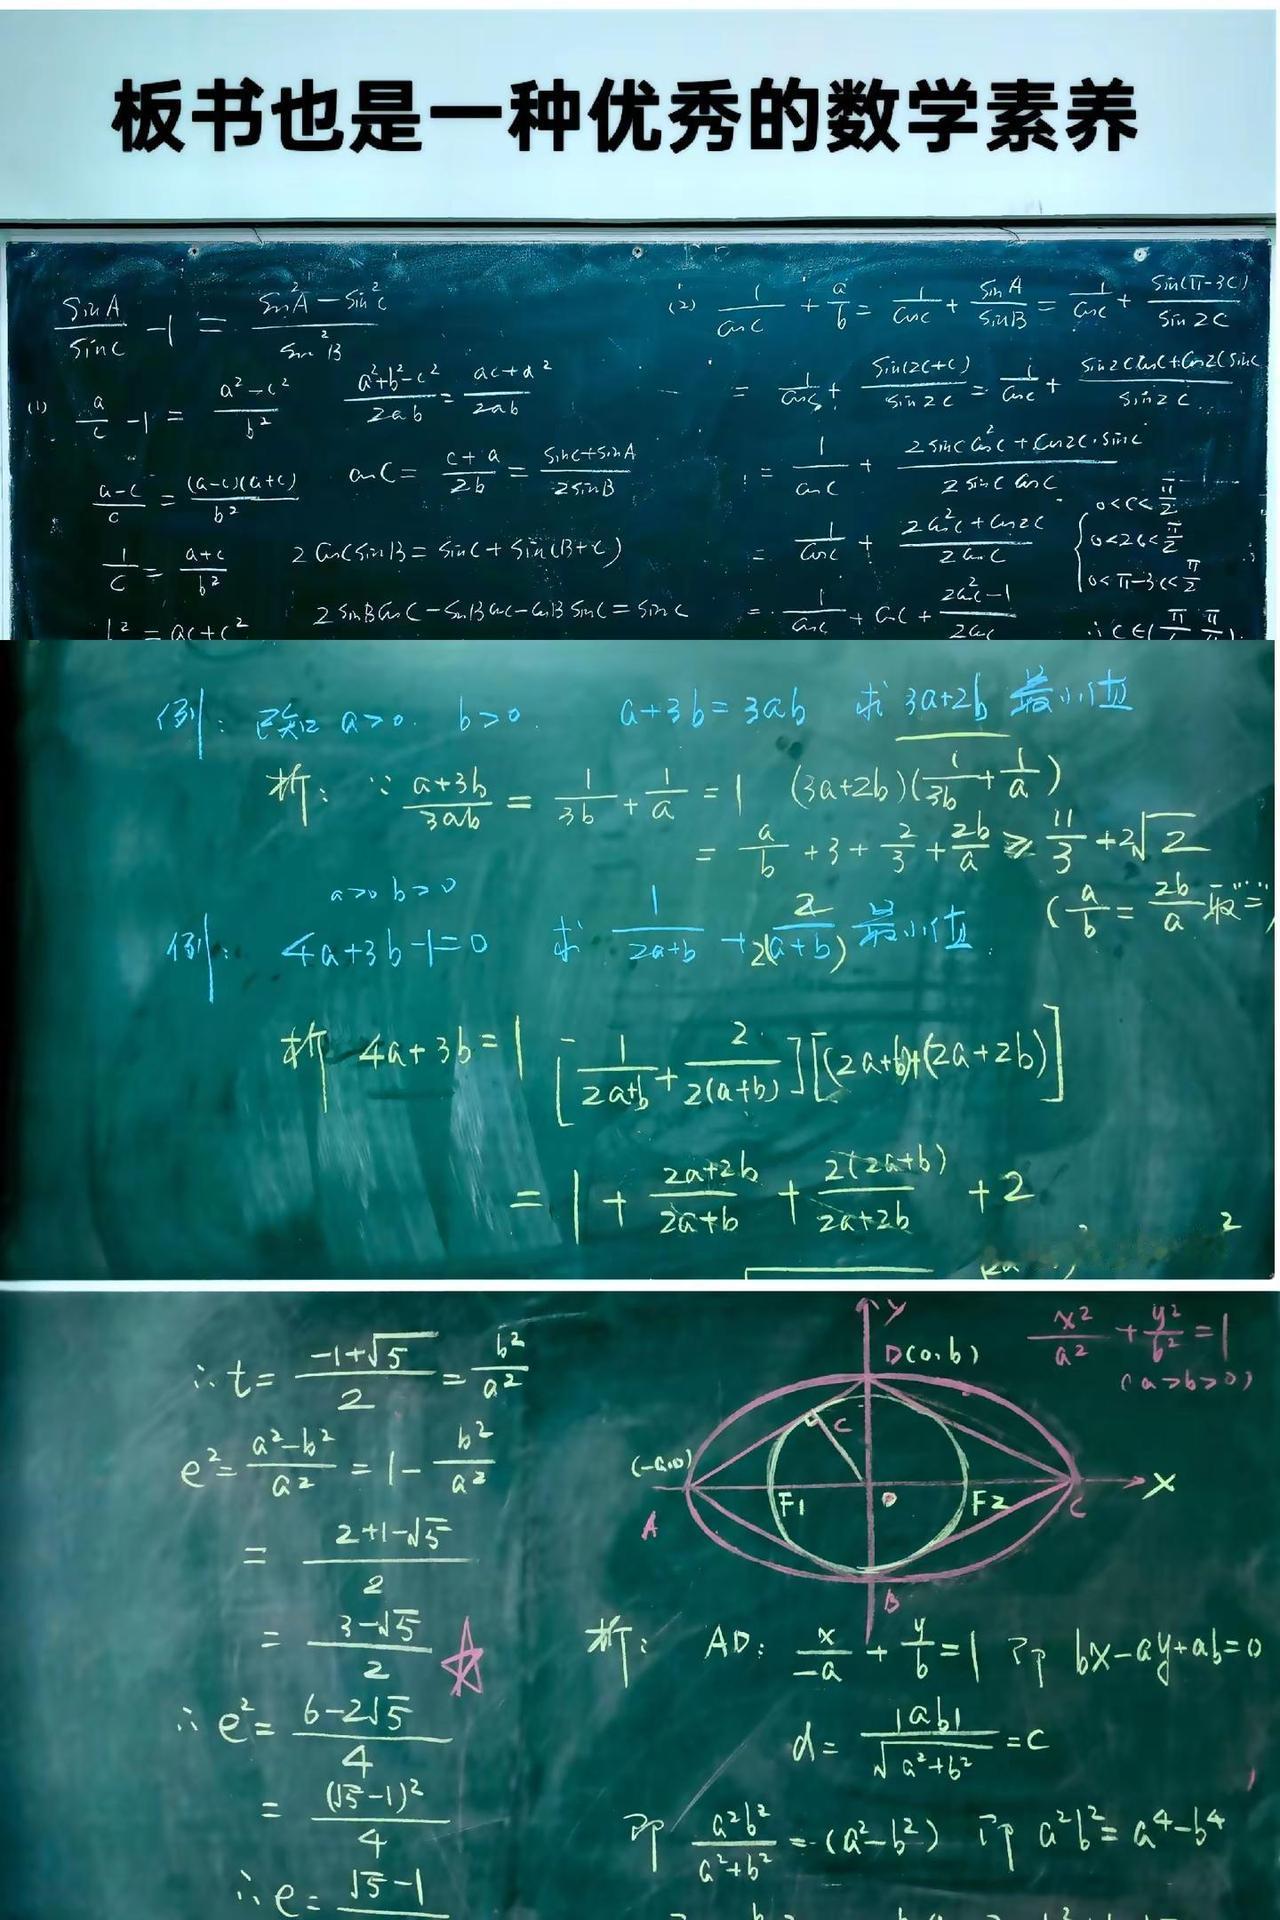 板书也是一种优秀的数学素养
sinA/sinC - 1 = (sin²A - sin²C)/sin²B
(1) a/c - 1 = (a² - c²)/b²
(a-c)/c = (a-c)(a+c)/b²
1/c = (a+c)/b²
b² = ac+c²
(a²+b²-c²)/2ab = (ac+a²)/2ab
cosC = (c+a)/2b = (sinC+sinA)/2sinB
2cosCsinB = sinC + sin(B+C)
2sinBcosC - sinBcosC - cosBsinC = sinC
(2) 1/cosC + a/b = 1/cosC + sinA/sinB = 1/cosC + sin(π-3C)/sin2C
= 1/cosC + sin(2C+C)/sin2C = 1/cosC + (sin2CcosC+cos2CsinC)/sin2C
= 1/cosC + (2sinCcos²C + cos2C·sinC)/(2sinCcosC)
= 1/cosC + (2cos²C + cos2C)/2cosC
= 1/cosC + cosC + (2cos²C-1)/2cosC
{ 0<C<π/2
0<2C<π/2
0<π-3C<π/2
例: 已知 a>0. b>0. a+3b=3ab 求 3a+2b 最小值
析: ∵ (a+3b)/3ab = 1/3b + 1/a = 1 (3a+2b)(1/3b + 1/a)
= a/b + 3 + 2/3 + 2b/a ≥ 11/3 + 2√2
(a/b = 2b/a 取"=")
a>0 b>0
例: 4a+3b-1=0 求 1/(2a+b) + 2/2(a+b) 最小值
析 4a+3b=1 [1/(2a+b) + 2/2(a+b)][(2a+b)+(2a+2b)]
= 1 + (2a+2b)/(2a+b) + 2(2a+b)/(2a+2b) + 2
∴ t = (-1+√5)/2 = b²/a²
e² = (a²-b²)/a² = 1 - b²/a²
= (2+1-√5)/2
= (3-√5)/2
∴ e² = (6-2√5)/4
= (√5-1)²/4
∴ e = √5-1
x²/a² + y²/b² = 1
(a>b>0)
Y
D(0,b)
C
(-a,0)
A
F1
F2
C
X
B
析: AD: x/-a + y/b = 1 即 bx-ay+ab=0
d = |ab|/√(a²+b²) = c
即 a²b²/(a²+b²) = (a²-b²) 即 a²b² = a⁴-b⁴